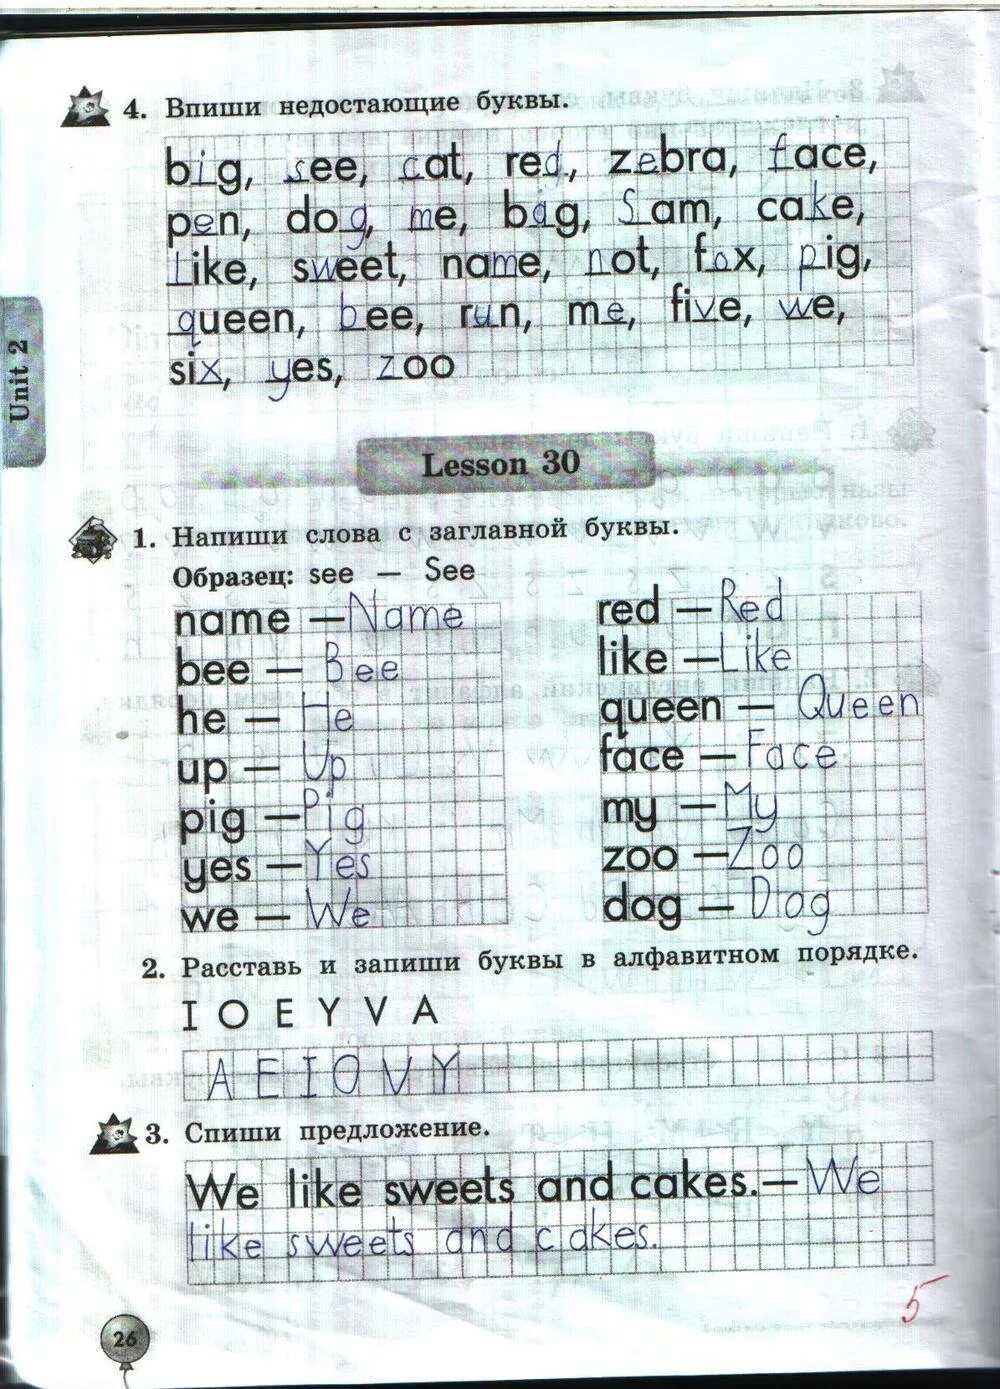 4. Впиши недостающие буквы.
big, see, cat, red, zebra, face,
pen, dog, me, bag, Sam, cake,
Like, sweet, name, not, fox, pig,
queen, bee, run, me, five, we,
six, yes, zoo
Unit 2
Lesson 30
1. Напиши слова с заглавной буквы.
Образец: see — See
name — Name
bee — Bee
he — He
up — Up
pig — Pig
yes — Yes
we — We
red — Red
like — Like
queen — Queen
face — Face
my — My
zoo — Zoo
dog — Dog
2. Расставь и запиши буквы в алфавитном порядке.
I O E Y V A
A E I O V Y
3. Спиши предложение.
We like sweets and cakes. — We
like sweets and cakes.
5
26